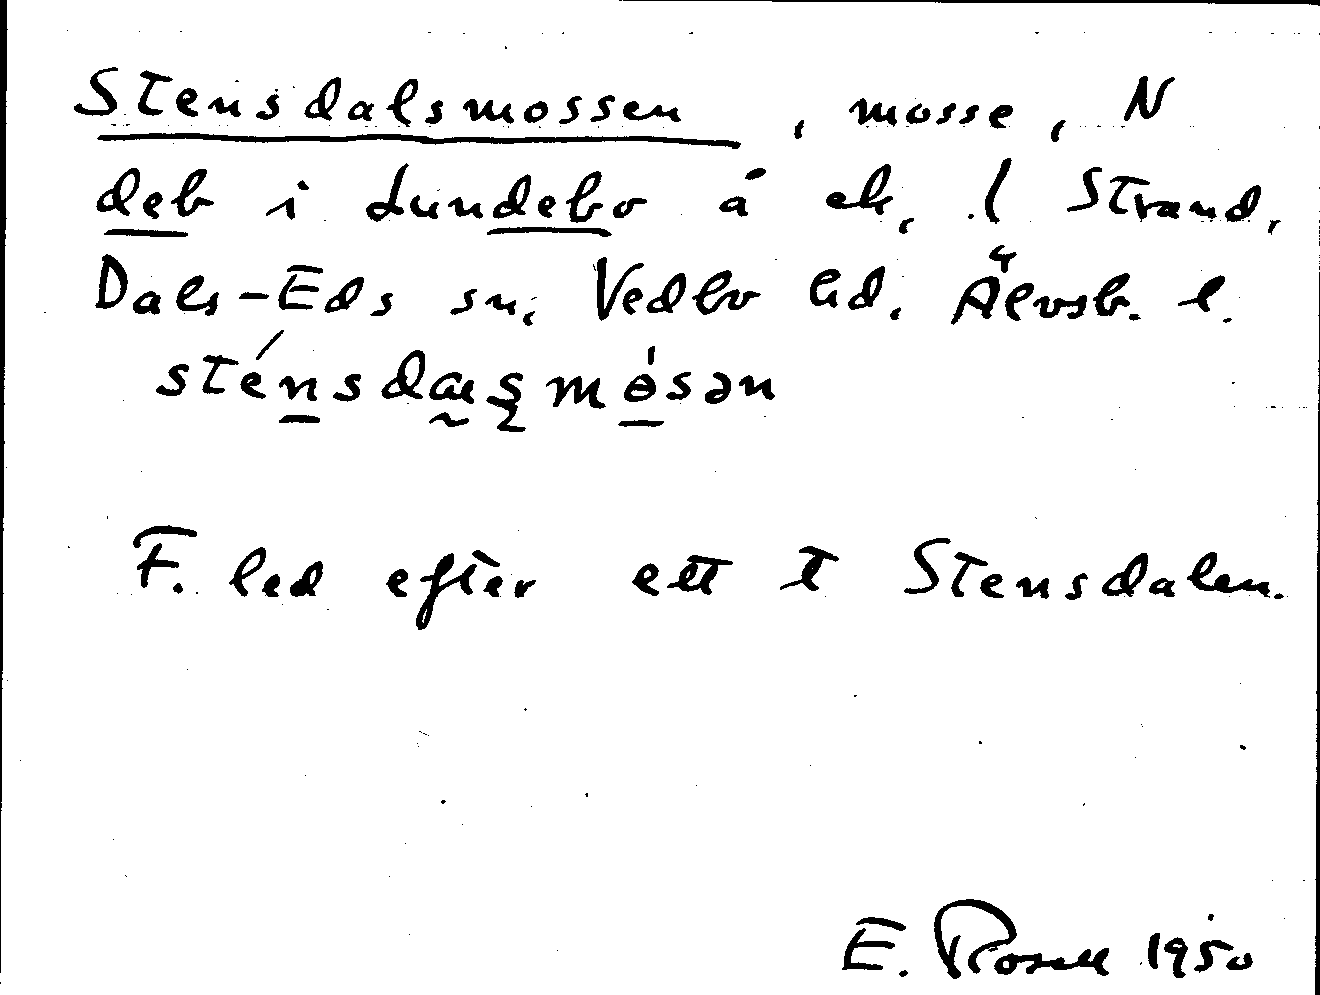 Stensdalsmossen, mosse, N
deb i Lundebo å ek. l Strand,
Dals-Eds sn, Vedbo hd. Älvsb. l.
sténsdaʂmósən
F. led efter ett t Stensdalen.
E. Rosell 1950